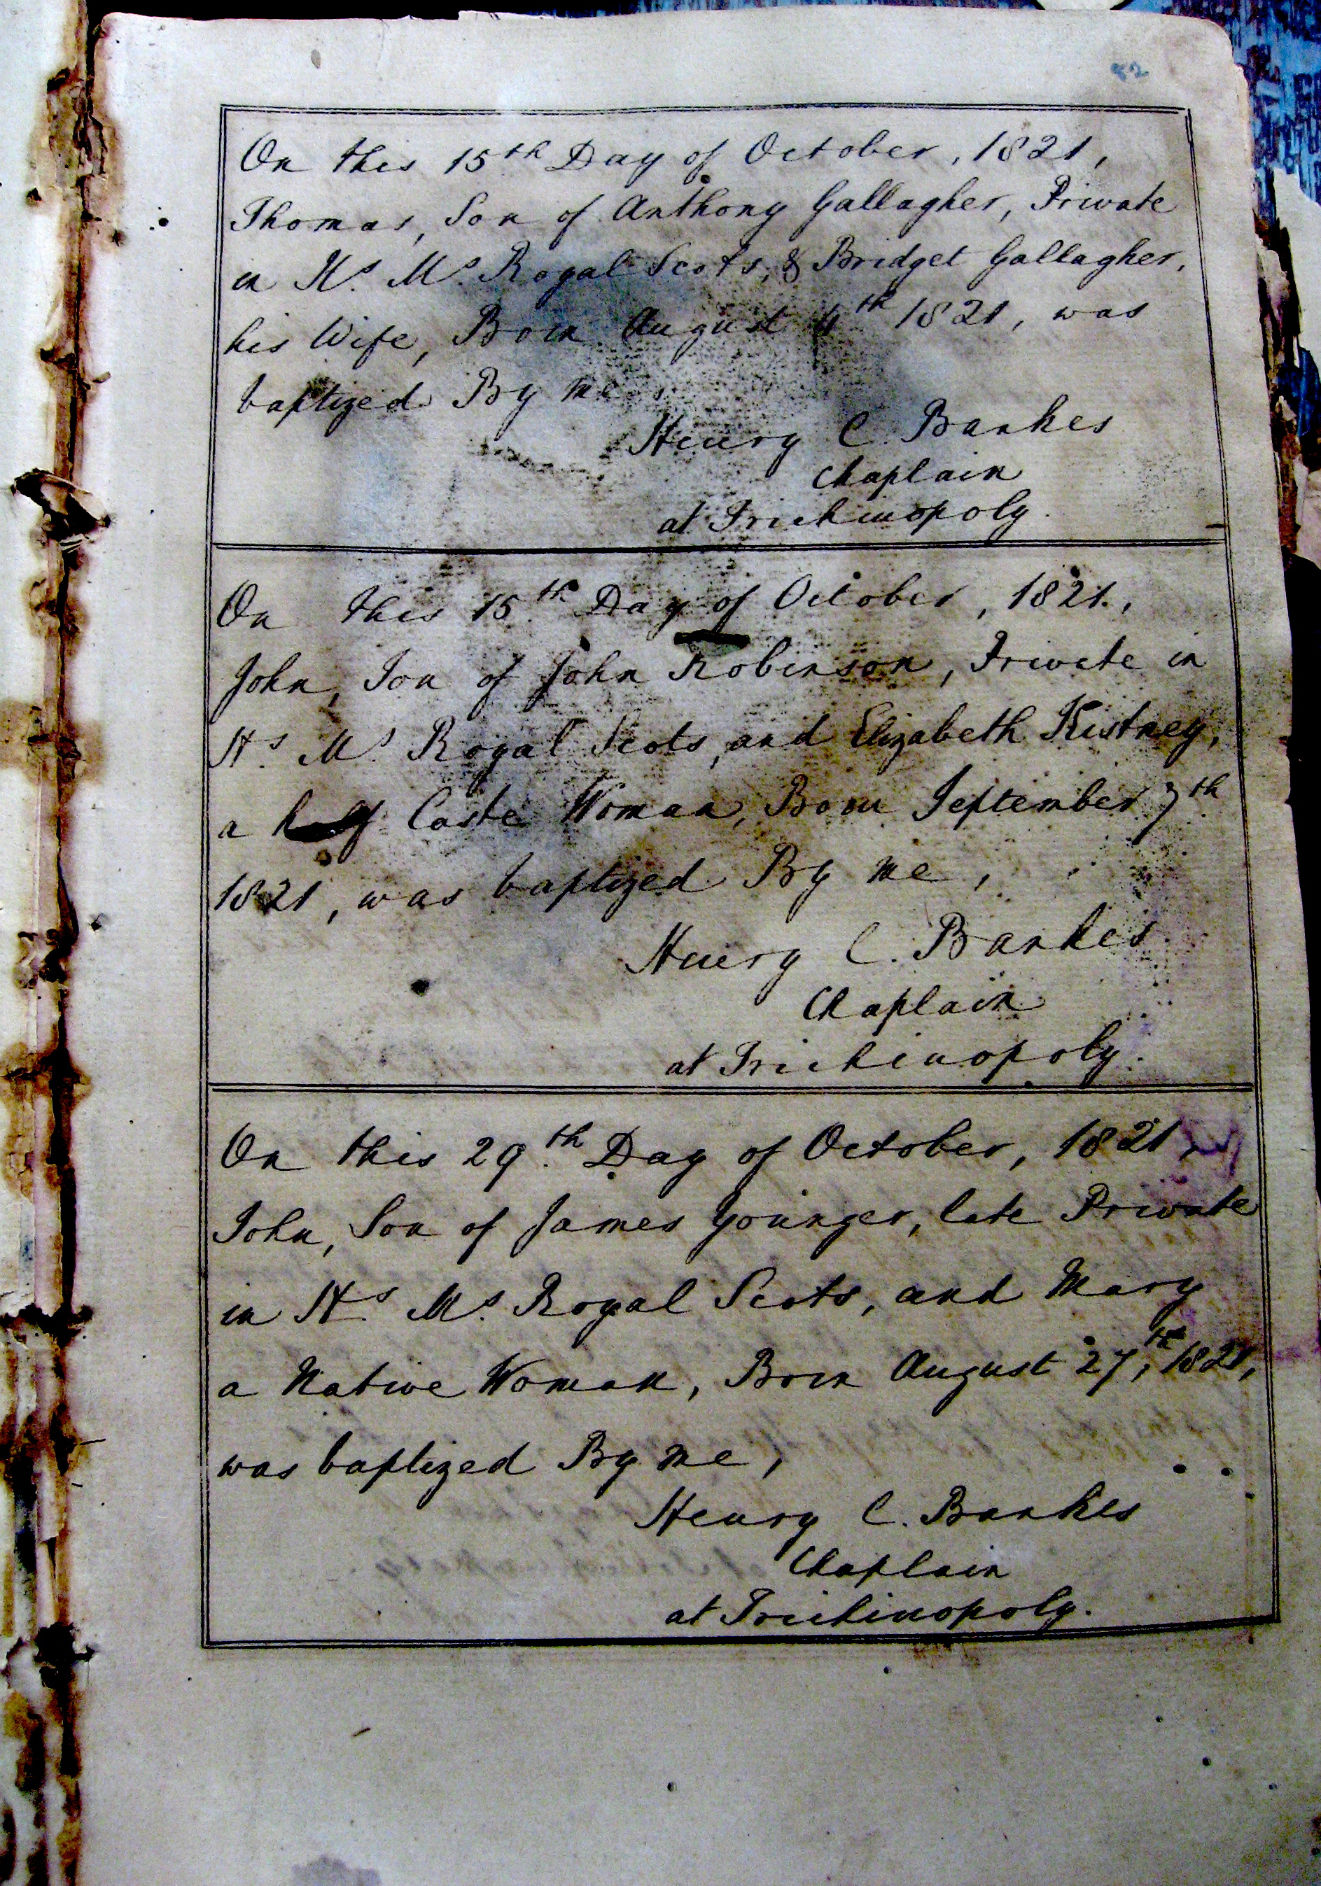 82
On this 15th Day of October, 1821,
Thomas, Son of Anthony Gallagher, Private
in H.s M.s Royal Scots, & Bridget Gallagher,
his Wife, Born August 4th 1821, was
baptized By me,
Henry C. Bankes
Chaplain
at Trichinopoly.
On this 15th Day of October, 1821,
John, Son of John Robinson, Private in
H.s M.s Royal Scots, and Elizabeth Kistney,
a half Caste Woman, Born September 7th
1821, was baptized By me,
Henry C. Bankes
Chaplain
at Trichinopoly.
On this 29th Day of October, 1821,
John, Son of James Younger, late Private
in H.s M.s Royal Scots, and Mary
a Native Woman, Born August 27th, 1821,
was baptized By me,
Henry C. Bankes
Chaplain
at Trichinopoly.